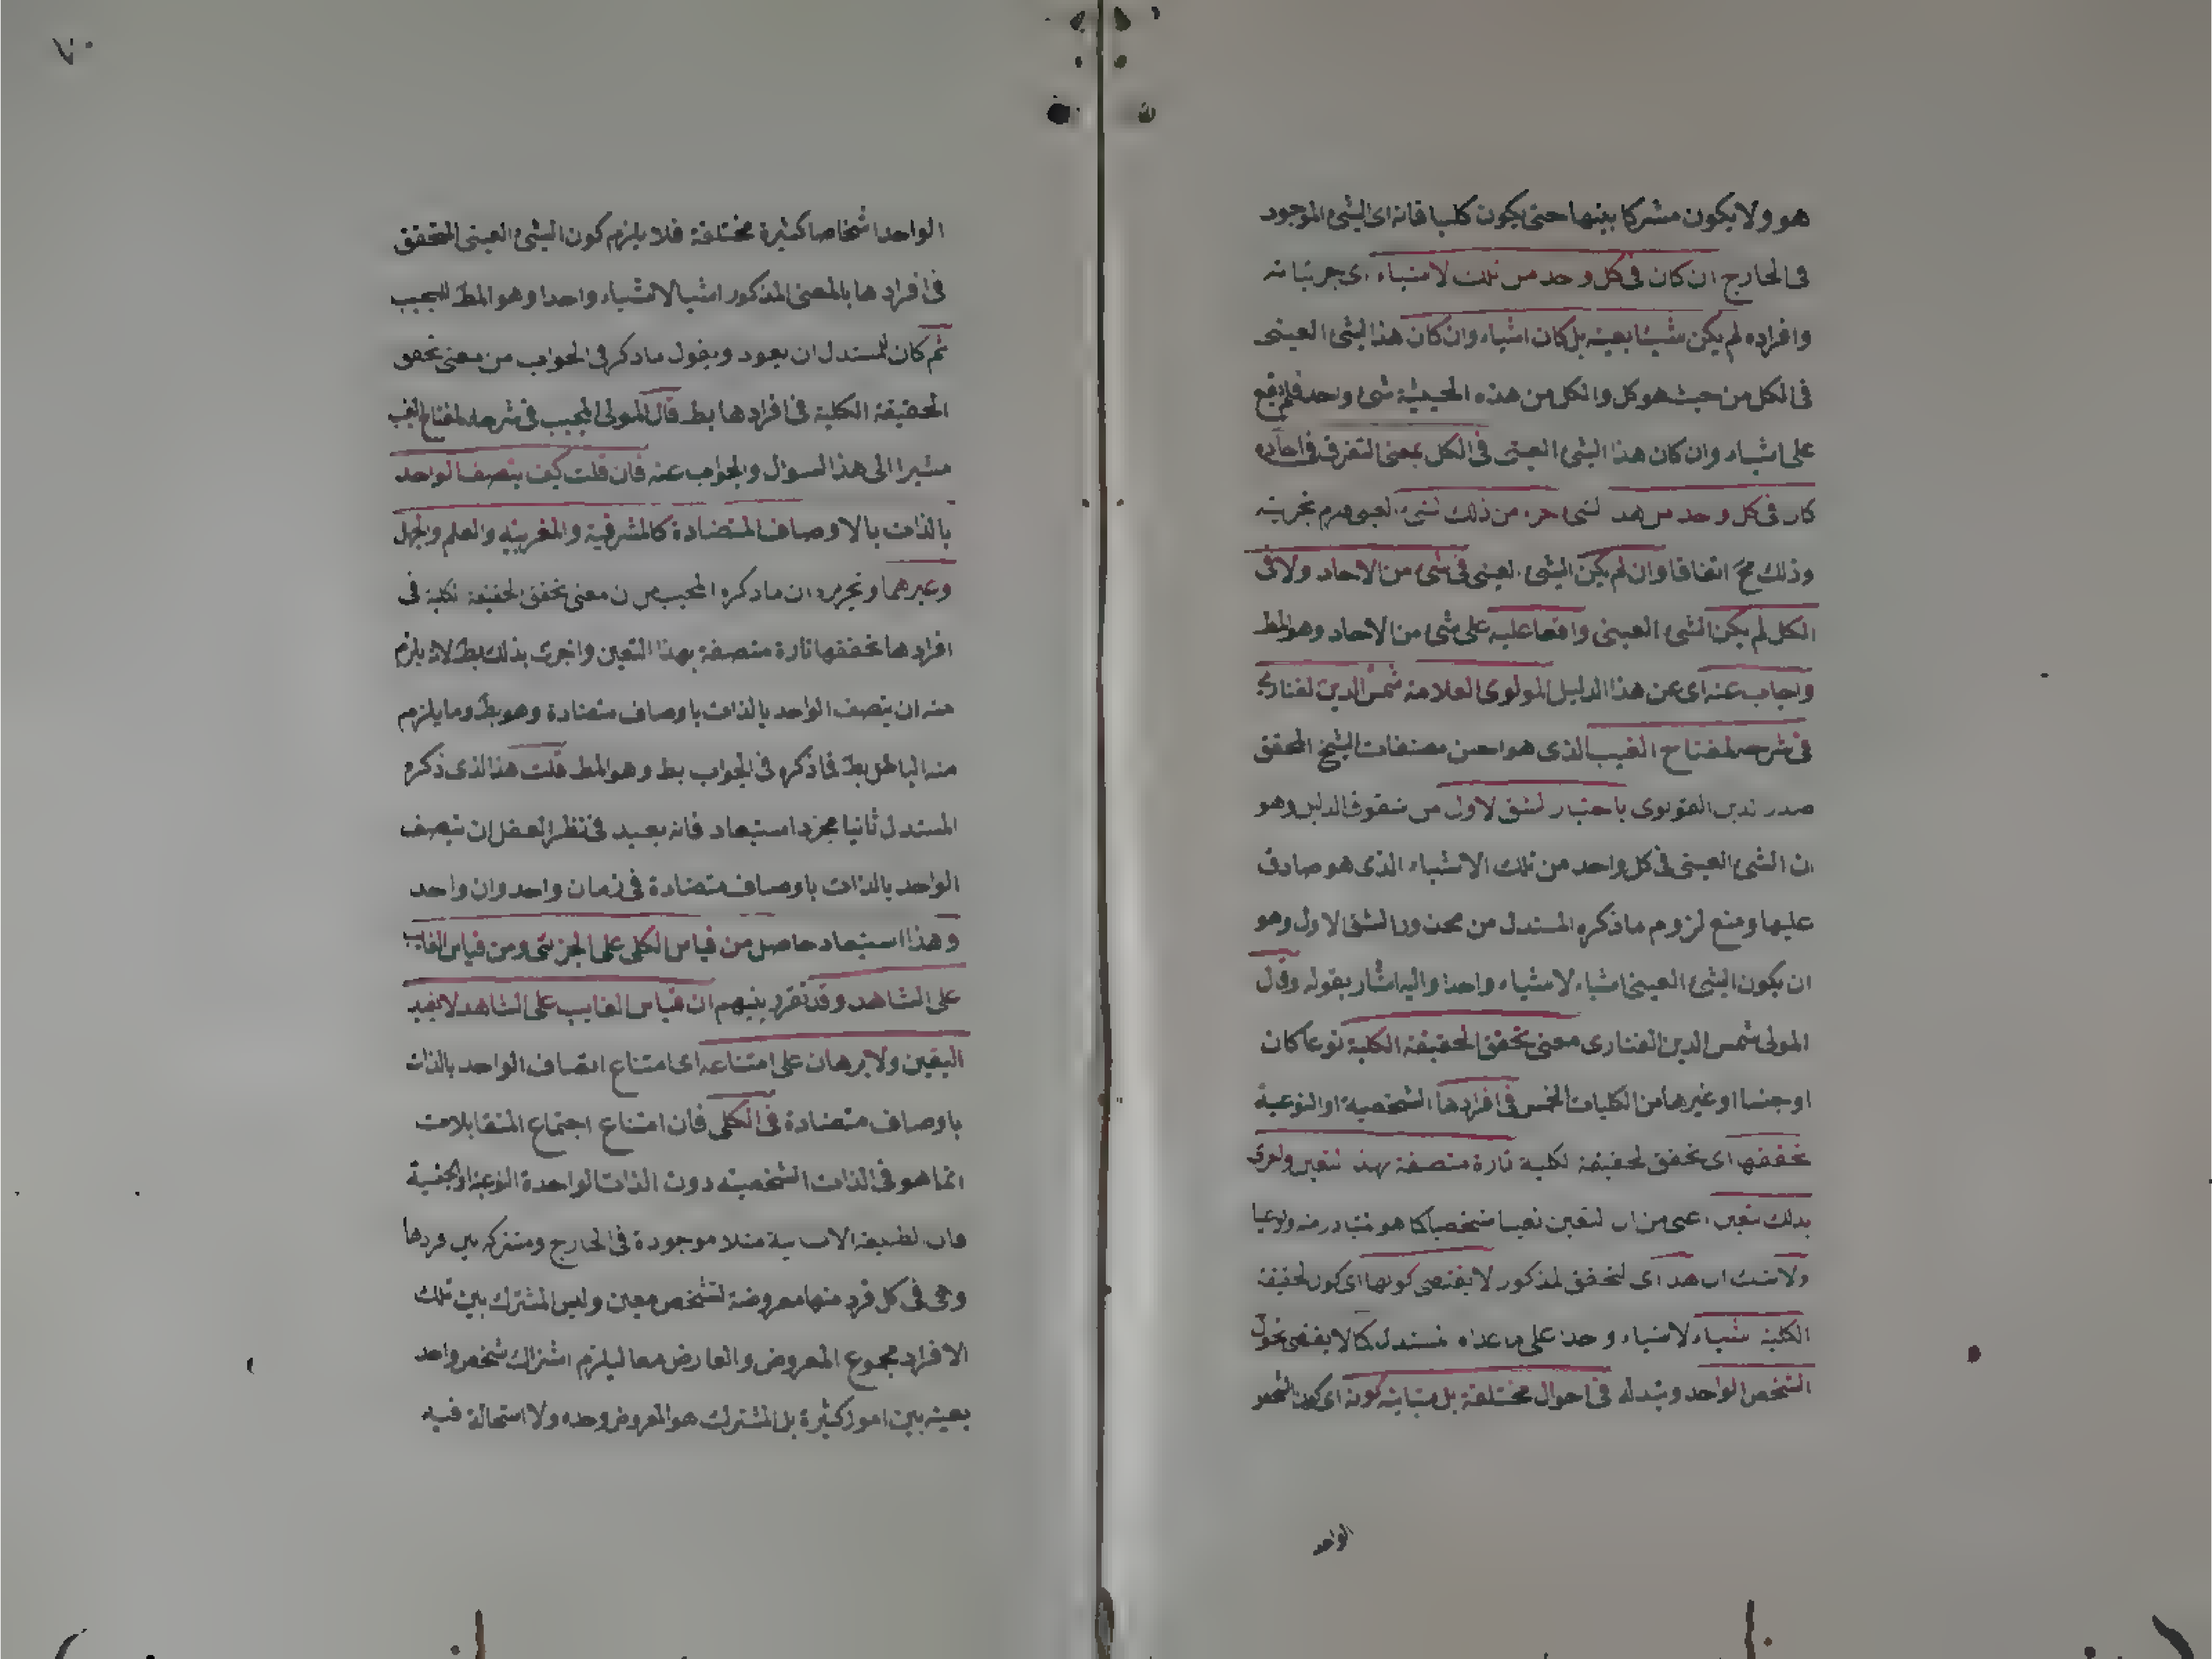 هو ولا يكون مشتركا بينها حتى يكون كليا فانه اى الشئ الموجود
فى الخارج ان كان فى كل واحد من تلك الاشياء اى جزئياته
وافراده لم يكن شيئا بعينه بل كان اشياء وان كان هذا الشئ العينى
فى الكل من حيث هو كل والكل من هذه الحيثية شئ واحد فلم يقع
على اشياء وان كان هذا الشئ العينى فى الكل بمعنى التفرق فى احاده
كان فى كل واحد من هذه جزء من ذلك الشئ العينى
وذلك مح اتفاقا وان لم يكن الشئ العينى فى شئ من الاحاد ولا فى
الكل لم يكن الشئ العينى واقعا عليه على شئ من الاحاد وهو المط
واجاب عنه اى عن هذا الدليل المولوى العلامة شمس الدين الفنارى
فى شرحه لمفتاح الغيب الذى هو احسن مصنفات الشيخ المحقق
صدر الدين القونوى باختيار الشق الاول من شقوق الدليل وهو
ان الشئ العينى فى كل واحد من تلك الاشياء الذى هو صادق
عليها ومنع لزوم ما ذكره المستدل من محذور الشق الاول وهو
ان يكون الشئ العينى اشياء لا شياء واحدا واليه اشار بقوله وقال
المولى شمس الدين الفنارى معنى تحقق الحقيقة الكلية نوعا كان
او جنسا او غيرها من الكليات الخمس فى افرادها الشخصية او النوعية
تحققها اى تحقق الحقيقة الكلية تارة متصفة بهذا التعين واخرى
بذلك التعين اعنى من ان التعين تعينا شخصيا كما هو متبادر منه
ولا شك ان هذا اى التحقق المذكور لا يقتضى كونها اى كون الحقيقة
الكلية شياء لا شياء واحدا على ما عداه المستدل كما لا يقتضى تحول
الشخص الواحد وتبدله فى احوال مختلفة بل متباينة كونه اى كون الشخص
الواحد
٧٠
الواحد اشخاصا كثيرة مختلفة فلا يلزم كون الشئ العينى المتحقق
فى افرادها بالمعنى المذكور اشيا لا شياء واحدا وهو المط للمجيب
ثم كان للمستدل ان يعود ويقول ما ذكر فى الجواب من معنى تحقق
الحقيقة الكلية فى افرادها بط قال المولى المجيب فى شرحه لمفتاح الغيب
مشيرا الى هذا السوال والجواب عنه فان قلت كيف يتصف الواحد
بالذات بالاوصاف المتضادة كالمشرقية والمغربية والعلم والجهل
وغيرهما وتحريره ان ما ذكره المجيب من ان معنى تحقق الحقيقة الكلية فى
افرادها تحققها تارة متصفة بهذا التعين واخرى بذلك بط لانه يلزم
منه ان يتصف الواحد بالذات باوصاف متضادة وهو بط وما يلزم
منه الباطل بط فما ذكره فى الجواب بط وهو المط قلت هذا الذى ذكره
المستدل ثانيا مجرد استبعاد فانه بعيد فى نظر العقل ان يتصف
الواحد بالذات باوصاف متضادة فى زمان واحد وان واحد
وهذا استبعاد حاصل من قياس الكلى على الجزئى ومن قياس الغايب
على الشاهد وقد تقرر بينهم ان قياس الغايب على الشاهد لا يفيد
اليقين ولا برهان على امتناعه اى امتناع اتصاف الواحد بالذات
باوصاف متضادة فى الكلى فان امتناع اجتماع المتقابلات
انما هو فى الذات الشخصية دون الذات الواحدة النوعية او الجنسية
فان الطبيعة الانسانية مثلا موجودة فى الخارج ومشتركه بين افرادها
وهى فى كل فرد منها معروضة لتشخص معين وليس المشترك بين تلك
الافراد مجموع المعروض والعارض معا ليلزم اشتراك شخص واحد
بعينه بين امور كثيرة بل المشترك هو المعروض وحده ولا استحالة فيه